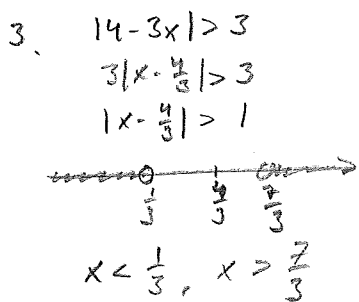 3. |4-3x| > 3
3|x-4/3| > 3
|x-4/3| > 1
1/3 4/3 7/3
x < 1/3, x > 7/3